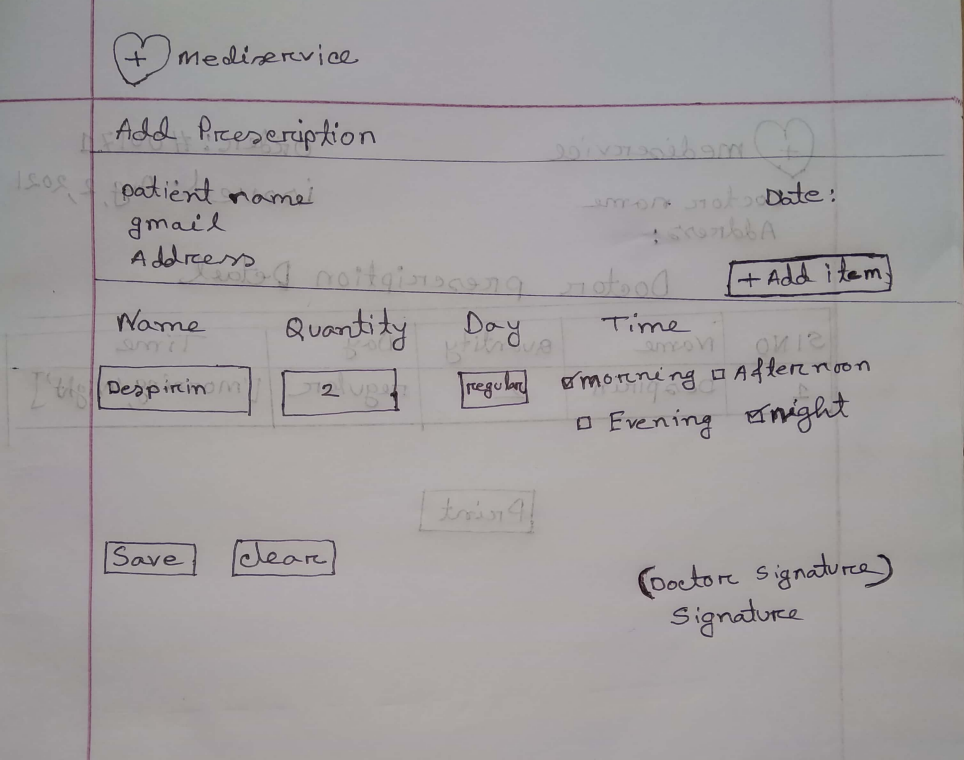 mediservice
Add Prescription
patient name Date:
gmail
Address
+ Add item
Name Quantity Day Time
Despirin 2 regular morning Afternoon
Evening night
Save Clear
(Doctor Signature)
Signature